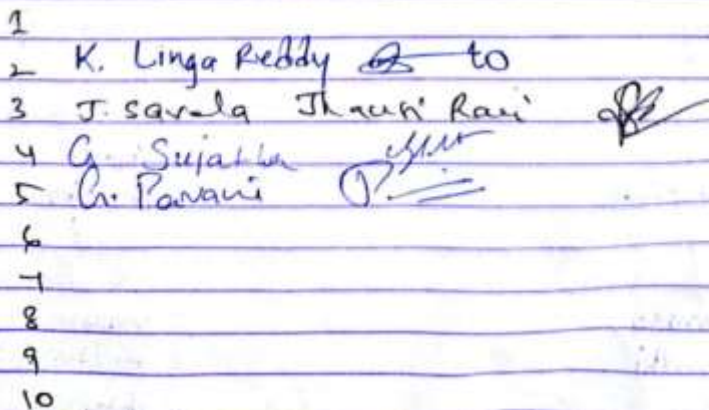 1
2 K. Linga Reddy to
3 J. Savala Jhansi Rani
4 G. Sujatha
5 G. Pavani
6
7
8
9
10